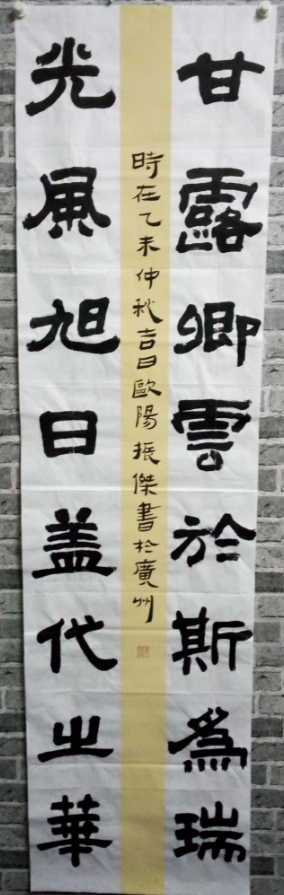 甘露卿雲於斯為瑞
時在乙未仲秋吉日歐陽振傑書於廣州
光風旭日盖代之華